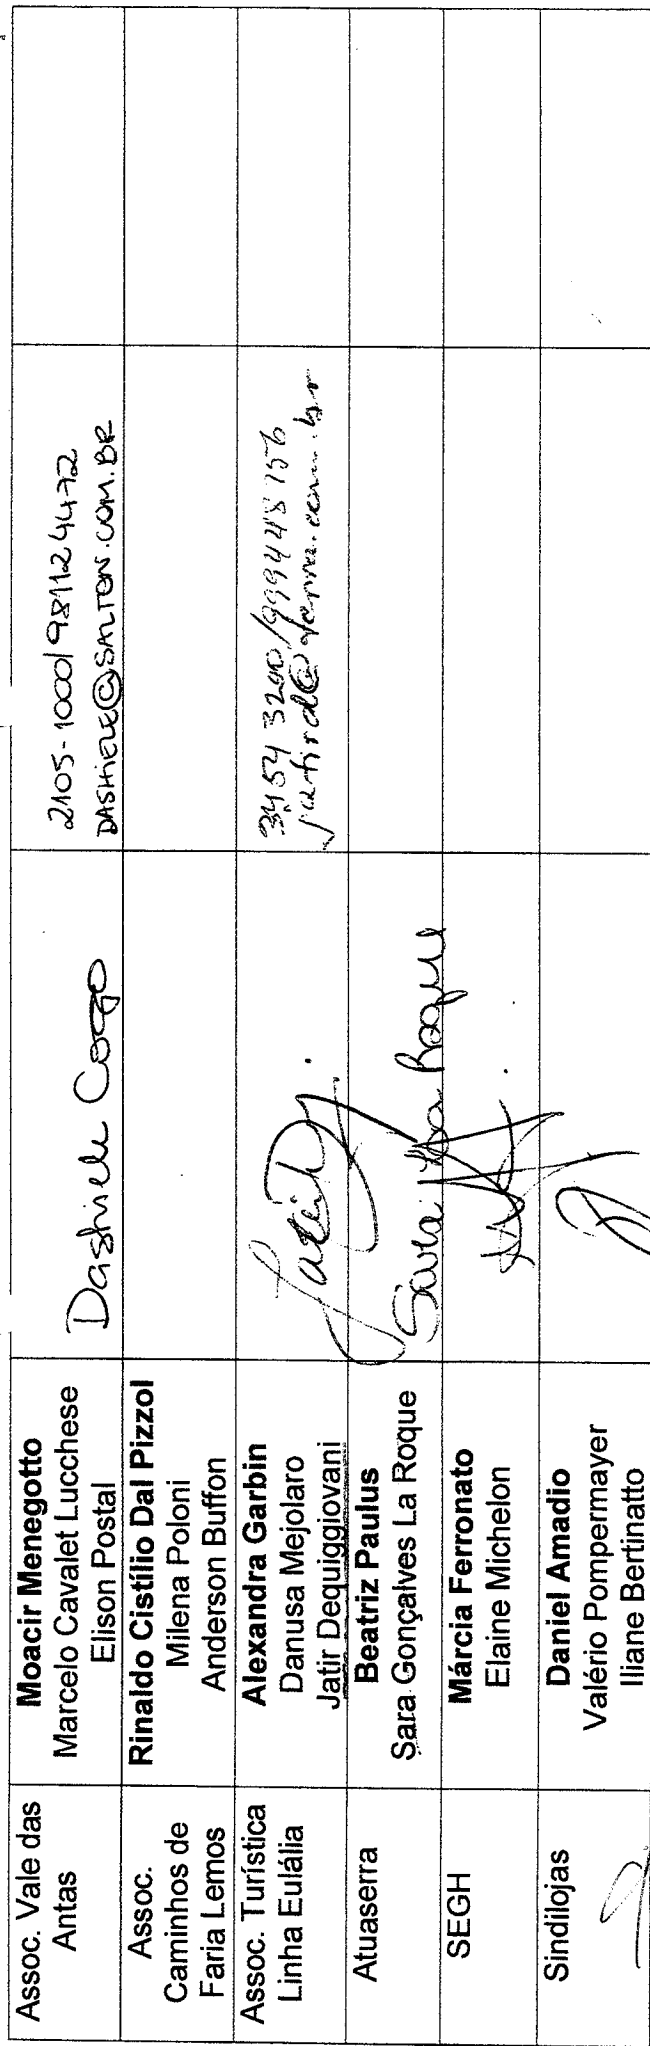 Assoc. Vale das
Antas
Moacir Menegotto
Marcelo Cavalet Lucchese
Elison Postal
Dashiele Cogo
2105-1000/981124472
DASHIELE@SALTON.COM.BR
Assoc.
Caminhos de
Faria Lemos
Rinaldo Cistílio Dal Pizzol
Milena Poloni
Anderson Buffon
Assoc. Turística
Linha Eulália
Alexandra Garbin
Danusa Mejolaro
Jatir Dequiggiovani
3454 3200/999448756
Atuaserra
Beatriz Paulus
Sara Gonçalves La Roque
Sara La Roque
SEGH
Márcia Ferronato
Elaine Michelon
Sindilojas
Daniel Amadio
Valério Pompermayer
Iliane Bertinatto